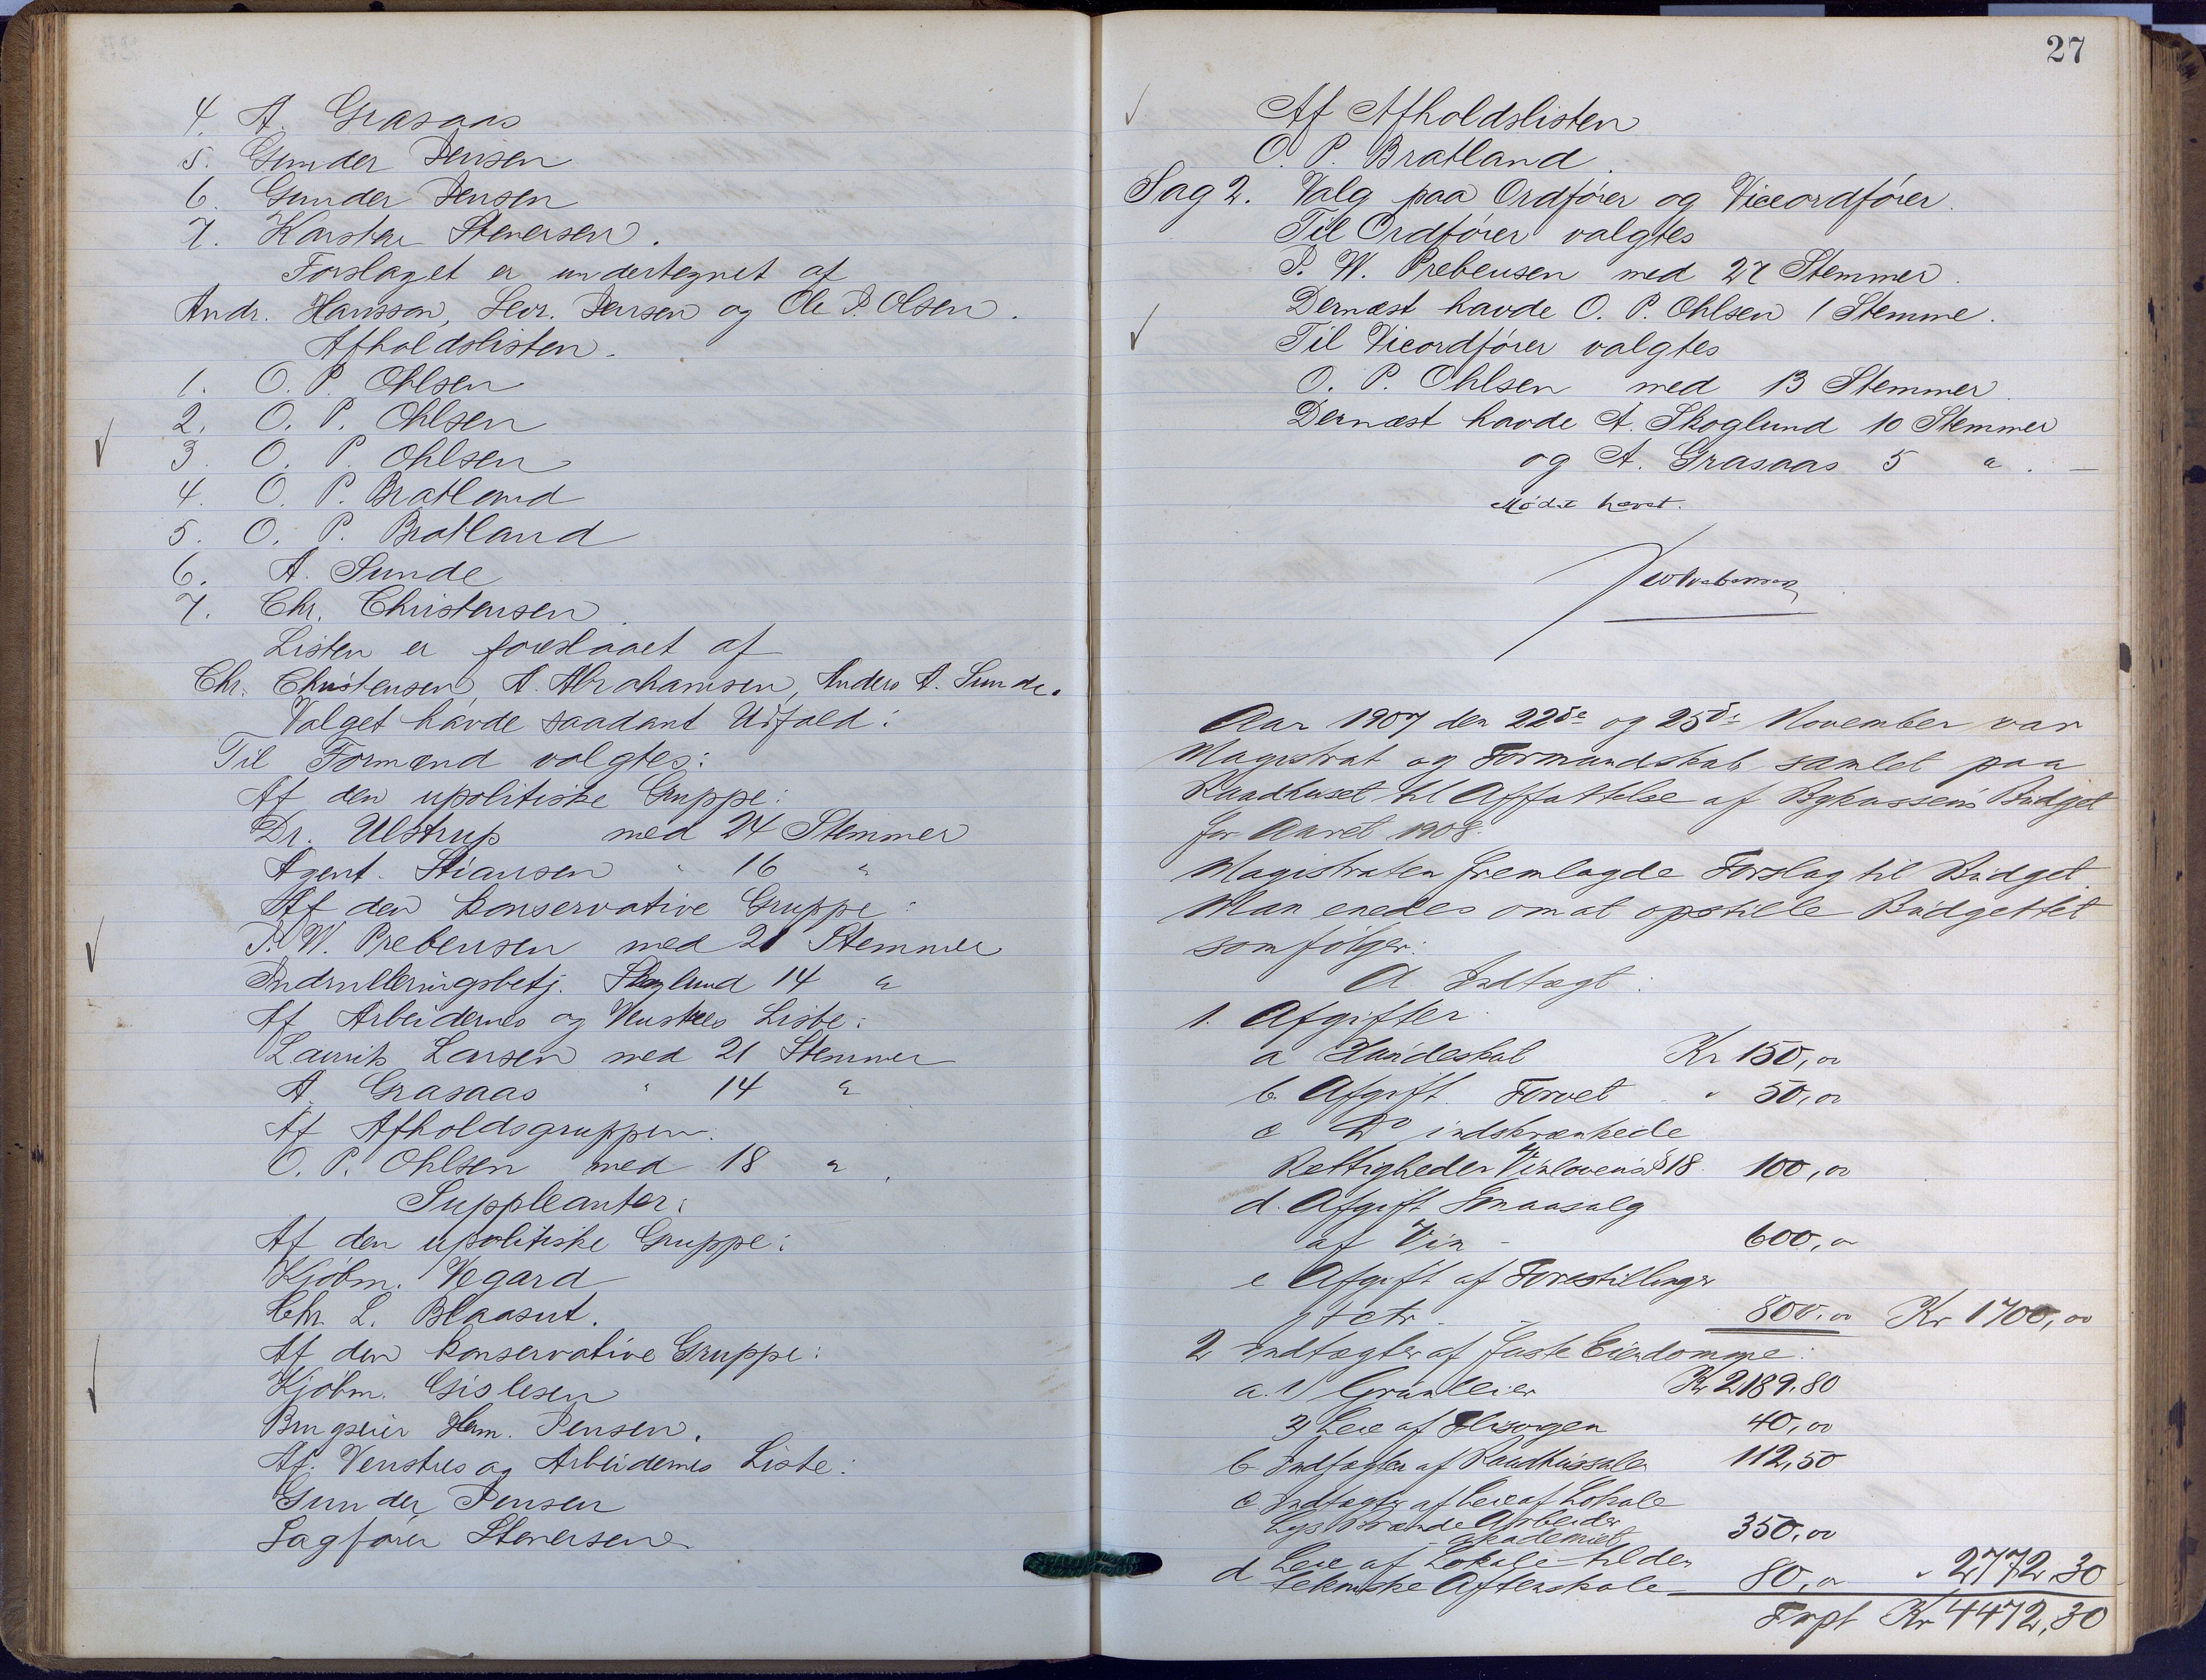 4. A. Grasaas
5. Gunder Jensen
6. Gunder Jensen
7. Karsten Stenersen.
Forslaget er undertegnet af
Andr. Hansson, Sevr. Jensen og Ole P. Olsen.
Afholdslisten.
1. O. P. Ohlsen
2. O. P. Ohlsen
3. O. P. Ohlsen
4. O. P. Bratland
5. O. P. Bratland
6. A. Sunde
7. Chr. Christensen.
Listen er foreslaaet af
Chr. Christensen, A. Abrahamsen, Anders A. Sunde.
Valget havde saadant Udfald:
Til Formænd valgtes:
Af den upolitiske Gruppe:
Dr. Ulstrup med 24 Stemmer
Agent Stiansen " 16 "
Af den konservative Gruppe:
P. W. Prebensen med 21 Stemmer
Indrulleringsbetj. Skoglund 14 "
Af Arbeidernes og Venstres Liste:
Laurits Larsen med 21 Stemmer
A. Grasaas " 14 "
Af Afholdsgruppen.
O. P. Ohlsen med 18 ".
Suppleanter:
Af den upolitiske Gruppe:
Kjøbm. Vegard
Chr. L. Blaasut.
Af den konservative Gruppe:
Kjøbm. Gislesen
Brugseier Herm. Jensen.
Af Venstres og Arbeidernes Liste:
Gunder Jensen
Sagfører Stenersen
27
Af Afholdslisten
O. P. Bratland.
Sag 2. Valg paa Ordfører og Viceordfører.
Til Ordfører valgtes
P. W. Prebensen med 27 Stemmer.
Dernæst havde O. P. Ohlsen 1 Stemme.
Til Viceordfører valgtes
O. P. Ohlsen med 13 Stemmer.
Dernæst havde A. Skoglund 10 Stemmer
og A. Grasaas 5 ". —
Mødet hævet.
Aar 1907 den 22de og 25de November var
Magistrat og Formandskab samlet paa
Raadhuset til Affattelse af Bykassens Budget
for Aaret 1908.
Magistraten fremlagde Forslag til Budget.
Man enedes om at opstille Budgettet
som følger:
A Indtægt:
1. Afgifter.
a Hundeskat Kr 150,00
b. Afgift. Torvet " 50,00
c Do indskrænkede
Rettigheder Vinlovens § 18. 100,00
d. Afgift Smaasalg
af Vin - 600,00
e Afgift af Forestillinger
etc. - 800,00 Kr 1700,00
2 Indtægter af faste Eiendomme:
a. 1) Grundleier Kr 2189.80
2) Leie af 40,00
b Indtægter af Raadhussalen 112,50
c. Indtægter af Leie af Lokale
Lys Brænde Arbeider
akademiet 350,00
d Leie af Lokale til den
tekniske Aftenskole 80,00 " 2772,30
Trpt Kr 4472,30